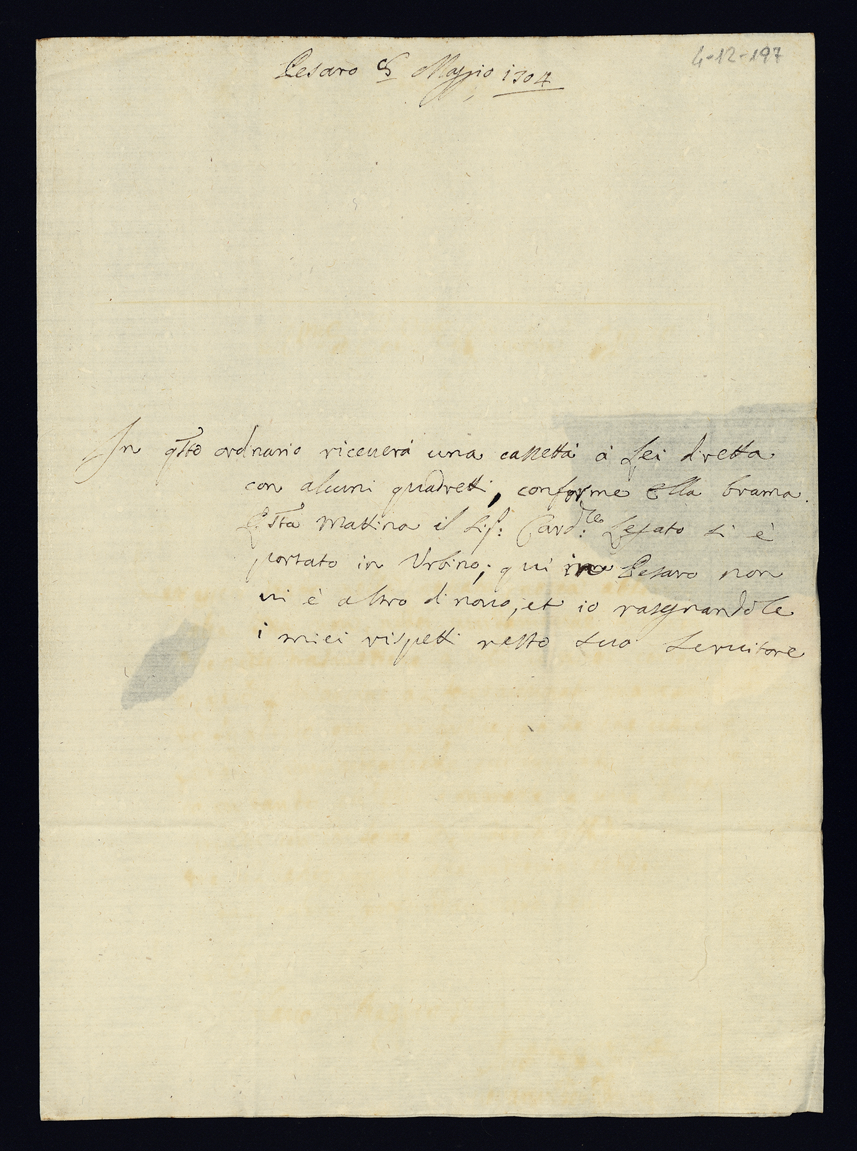 4-12-197
Pesaro 8 Maggio 1704
In q̃sto ordinario riceverà una cassetta à Lei diretta
con alcuni quadretti, conforme ella brama.
Q̃sta Mattina il Sig.r Card.le Legato si è
portato in Urbino; qui in Pesaro non
vi è altro di novo, et io rasegnandole
i miei rispetti resto suo servitore